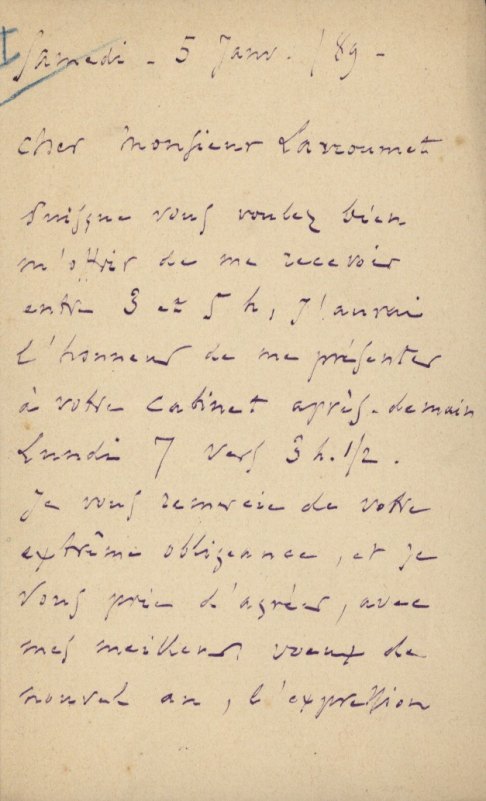 Samedi - 5 Janv. /89 -
Cher Monsieur Larroumet
Puisque vous voulez bien
m'offrir de me recevoir
entre 3 et 5 h, j'aurai
l'honneur de me présenter
à votre cabinet après-demain
Lundi 7 vers 3 h. 1/2.
Je vous remercie de votre
extrême obligeance, et je
vous prie d'agréer, avec
mes meilleurs voeux de
nouvel an, l'expression